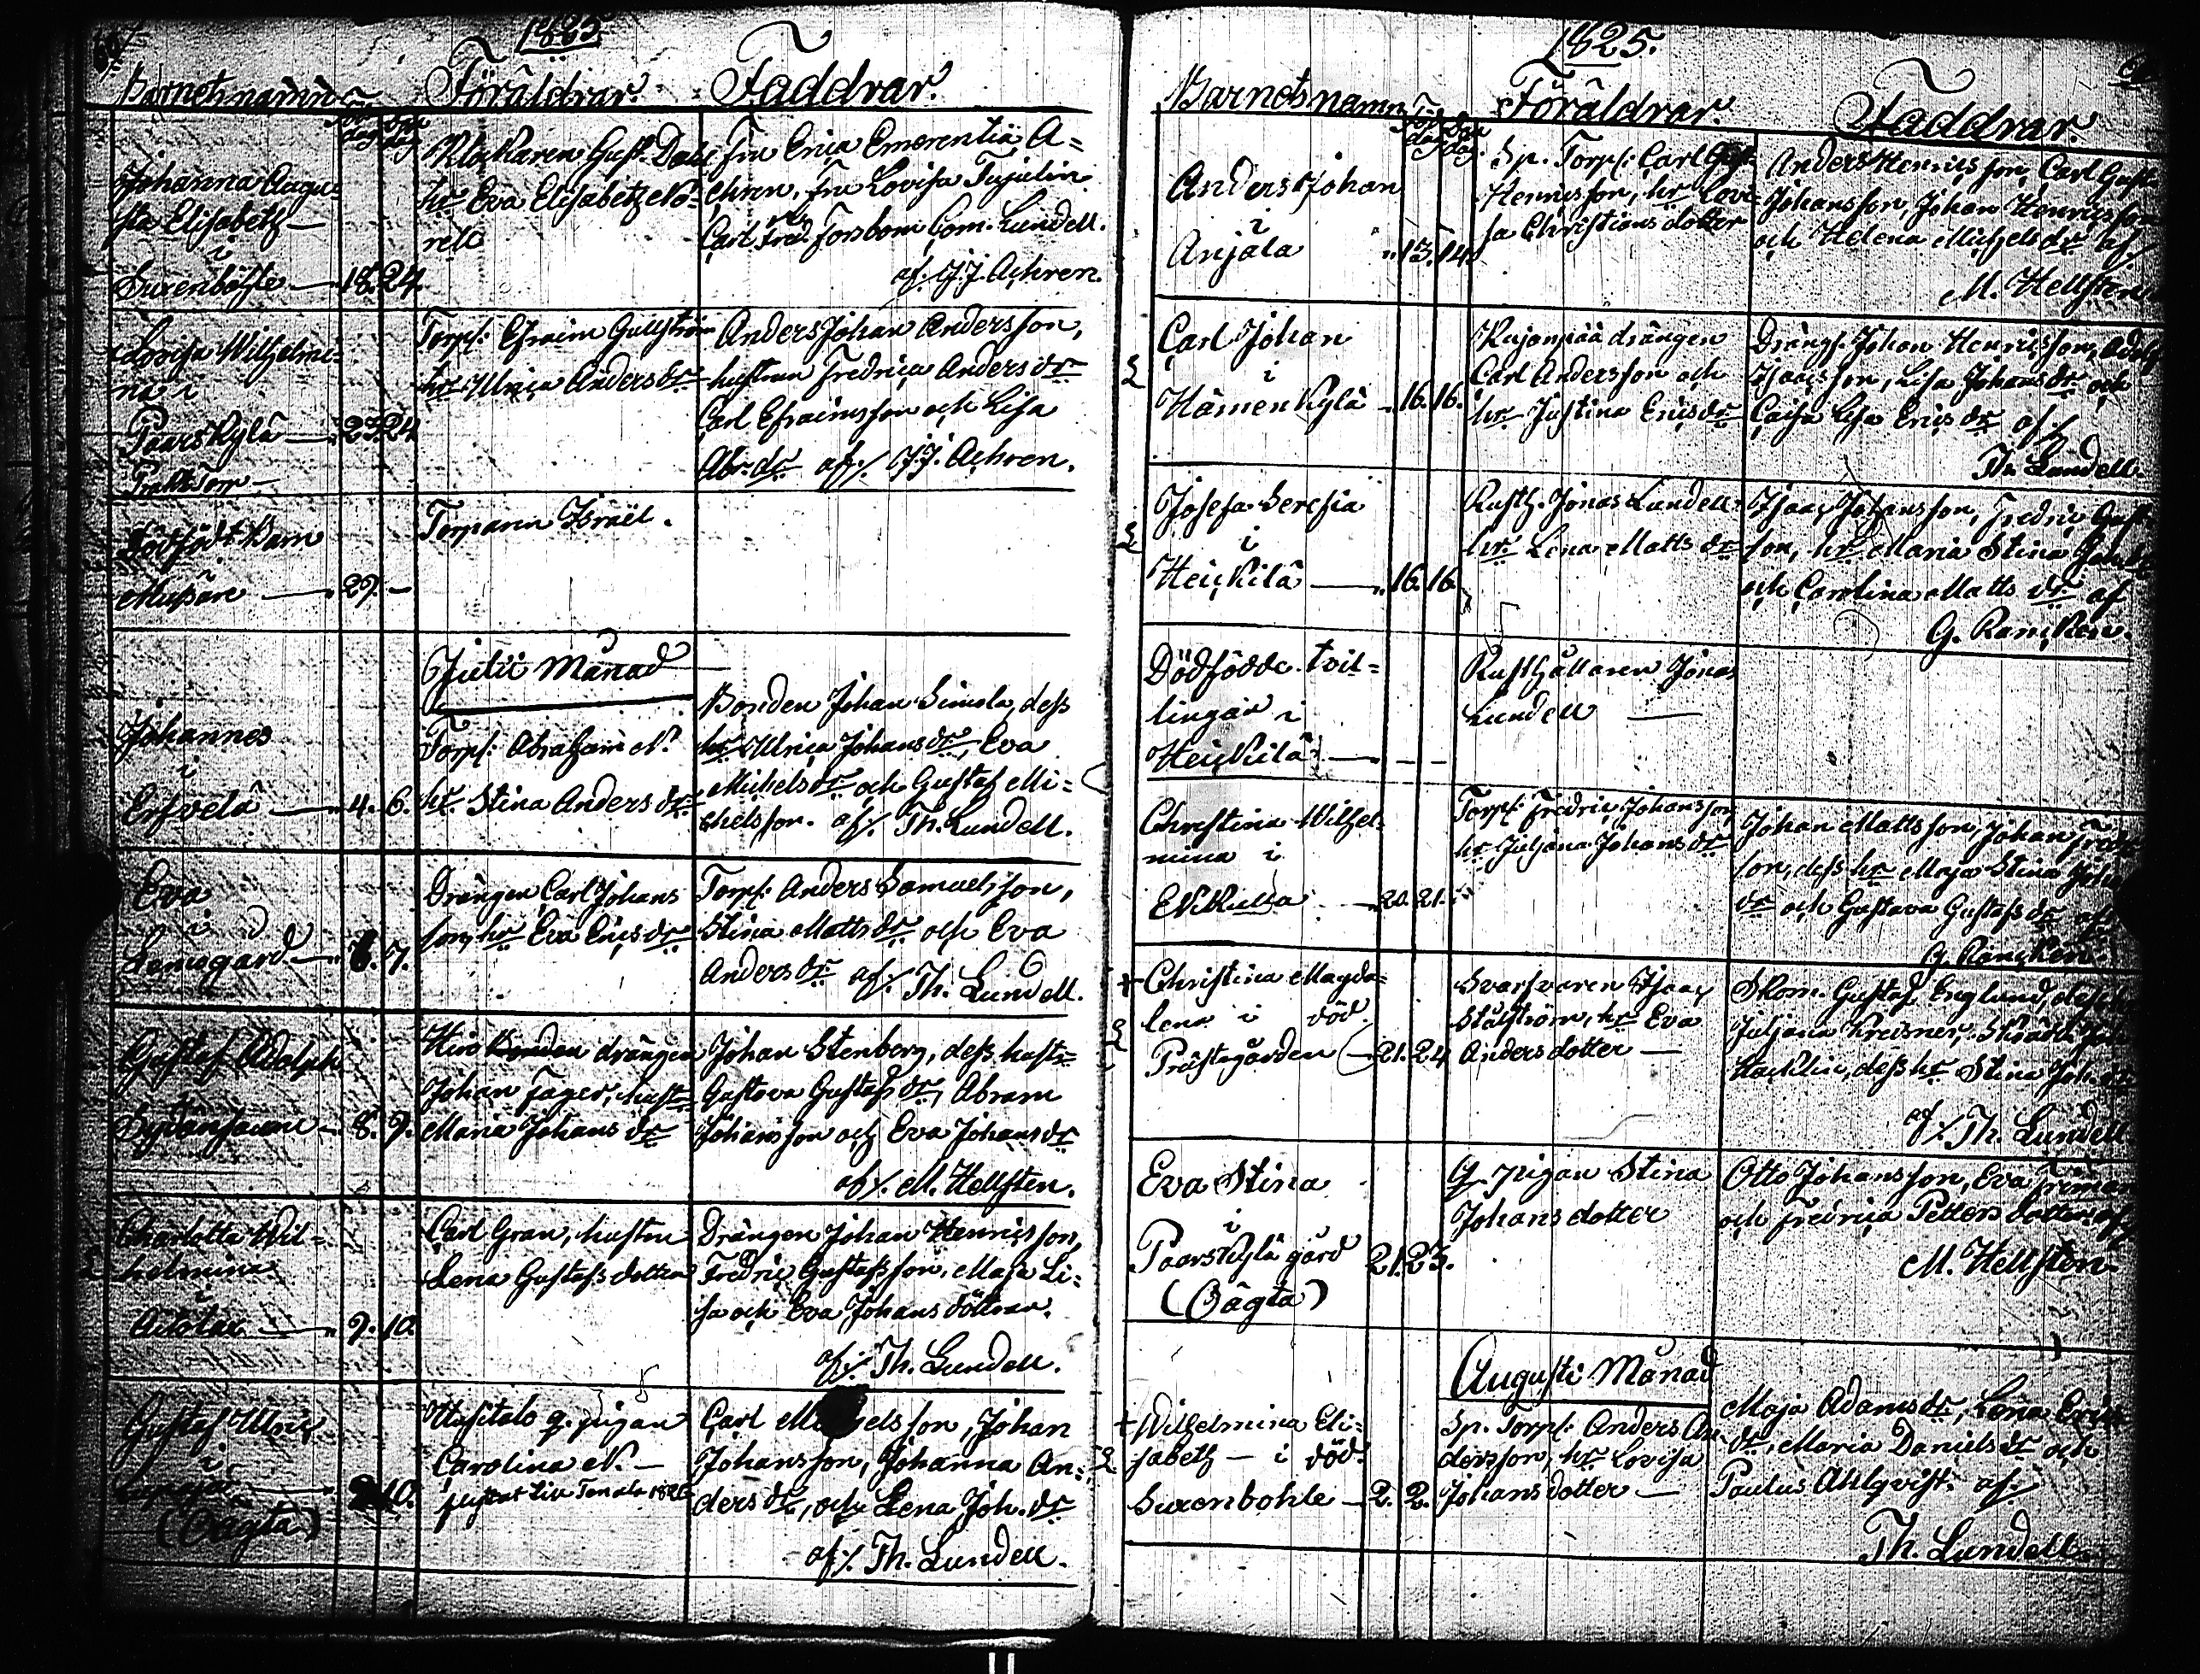 1825.
Barnets namn Föd. dag Döp. dag Föräldrar. Faddrar.
Johanna Augu-
sta Elisabeth
i
Suxenböhle 18. 24.
Klockaren Gust. Dahl
hr Eva Elisabeth No-
rell
fru Erica Emerentia A-
chren, fru Lovisa Tujulin
Carl Fred. Forsbom Com. Lundell.
af. J.J. Achren.
Lovisa Wilhelmi-
na i
Paarskylä 23. 24
Torp: Efraim Gullström
hr Ulrica Anders dr
Anders Johan Andersson,
hustrun Fredrica Anders dr
Carl Efraimsson och Lisa
Abr. dr af/. J.J. Achren.
Dödfödt Barn
29. —
Torparen Israël.
Julii Månad
Johannes
i
Erfvelä 4. 6.
Torp: Abraham N.
hr Stina Anders dr
Bonden Johan Simola, dess
hr Ulrica Johans dr, Eva
Michels dr och Gustaf Mi-
chelsson. af/. Th. Lundell.
Eva
i
Lemugård 6. 7.
Drängen Carl Johans
son, hr Eva Erics dr
Torp: Anders Samuelsson,
Stina Matts dr och Eva
Anders dr af/. Th. Lundell.
Gustaf Adolph
i
8. 9.
drängen
Johan Fager, hust.
Maria Johans dr
Johan Stenberg, dess hust:
Gustava Gustafs dr, Abram
Johansson och Eva Johans dr
af/. M. Hellsten.
Charlotta Wil-
helmina
i
9. 10.
Carl Gran, hustru
Lena Gustafs dotter
Drängen Johan Henricsson,
Fredric Gustafsson, Maja Li-
sa och Eva Johans döttrar.
af/. Th. Lundell.
Gustaf Ulric
i
10.
(Oägta)
q. pigan
Carolina N. —
Carl Michelsson, Johan
Johansson, Johanna An-
ders dr, och Lena Joh. dr
af/. Th. Lundell.
1825.
Barnets namn Föd. dag Döp. dag. Föräldrar. Faddrar.
Anders Johan
i
Anjala 13. 14.
Sp. Torp: Carl Gust.
Henricsson, hr Lovi-
sa Christians dotter
Anders Henricsson, Carl Gust.
Johansson, Johan Henricsson
och Helena Michels dr af/
M. Hellsten
Carl Johan
i
Hämenkylä 16. 16.
Kujanpää drängen
Carl Andersson och
hr Justina Erics dr
Drängs. Johan Henricsson, Adolf
Isaacsson, Lisa Johans dr och
Caisa Lisa Erics dr af/
Th. Lundell.
Josefa Serefia
i
Heickilä 16. 16.
Rusth. Jonas Lundell
hr Lena Matts dr
Isaac Johansson, Fredric Gust.
son, hr Maria Stina
och Carolina Matts dr af
G. Rancken.
Dödfödde tvil-
lingar i
Heickilä — — —
Rusthållaren Jonas
Lundell —
Christina Wilhel-
mina i
Ekkulla 20. 21.
Torp: Fredric Johansson
hr Juliana Johans dr
Johan Mattsson, Johan Fredr.
son, dess hr Maja Stina Johans
dr och Gustava Gustafs dr af/
G. Rancken.
+ Christina Magda-
lena i död.
Prästegården 21. 24
Svarfvaren Isaac
Stålström, hr Eva
Anders dotter —
Skom. Gustaf Englund, dess hr
Juljana Kreisner,
Hacklin, dess hr Stina Joh. dr
af/. Th. Lundell
Eva Stina
i
Paarskylä gård 21. 23.
(Oägta)
Q. pigan Stina
Johans dotter
Otto Johansson, Eva
och Fredrica Petters dotter af/
M. Hellsten
Augusti Månad
+ Wilhelmina Eli-
sabeth — i död.
Suxenbohle 2. 2.
Sp. Torp: Anders An-
dersson, hr Lovisa
Johans dotter —
Maja Adams dr, Lena Erics
dr, Maria Daniels dr och
Paulus Ahlqvist. af/
Th. Lundell.